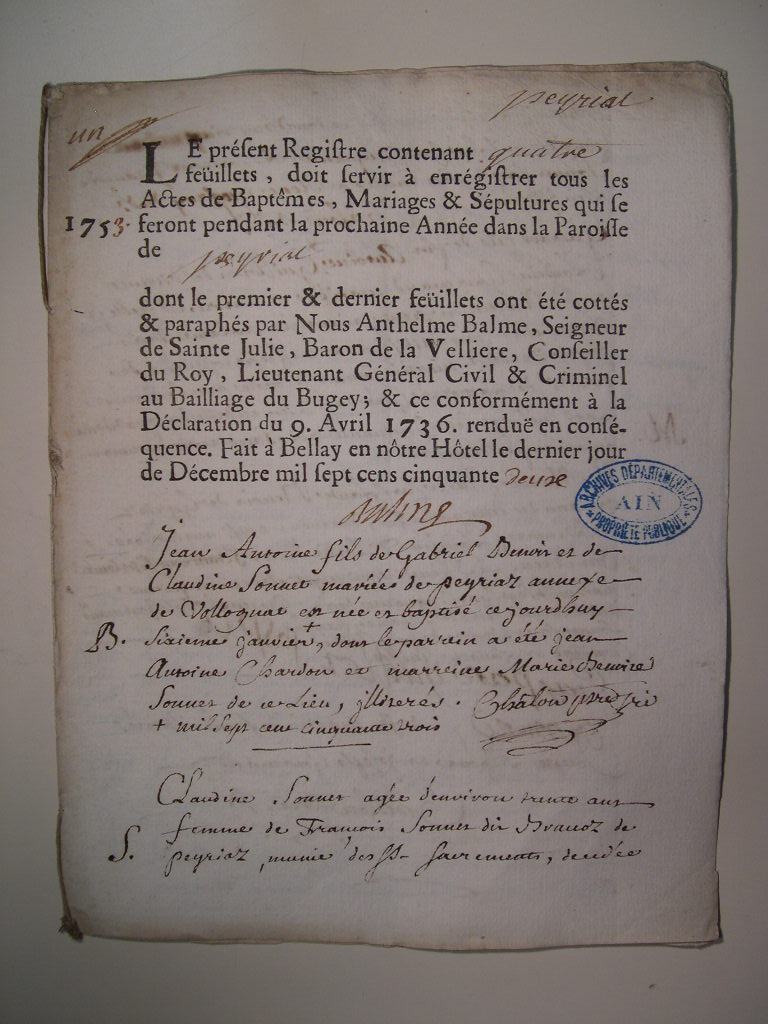 peyriat
un
LE présent Registre contenant quatre
feüillets, doit servir à enrégistrer tous les
Actes de Baptêmes, Mariages & Sépultures qui se
1753. feront pendant la prochaine Année dans la Paroisse
de peyriat
dont le premier & dernier feüillets ont été cottés
& paraphés par Nous Anthelme Balme, Seigneur
de Sainte Julie, Baron de la Velliere, Conseiller
du Roy, Lieutenant Général Civil & Criminel
au Bailliage du Bugey; & ce conformément à la
Déclaration du 9. Avril 1736. renduë en consé-
quence. Fait à Bellay en nôtre Hôtel le dernier jour
de Décembre mil sept cens cinquante deuxe
ARCHIVES DÉPARTEMENTALES
AIN
PROPRIÉTÉ PUBLIQUE
Jean Antoine fils de Gabriel et de
Claudine Sonnet mariés de peyriaz annexe
de Vollognat est née et baptisé ce jourdhuy
B. sixieme janvier +, dont le parrein a été jean
Antoine Chardon et marreine Marie
Sonnet de ce Lieu, illiterés. Chalon
+ mil sept cent cinquante trois
Claudine Sonnet agée d'environ trente ans
femme de François Sonnet dit de
S. peyriaz, munie des Sts sacrements, decedée